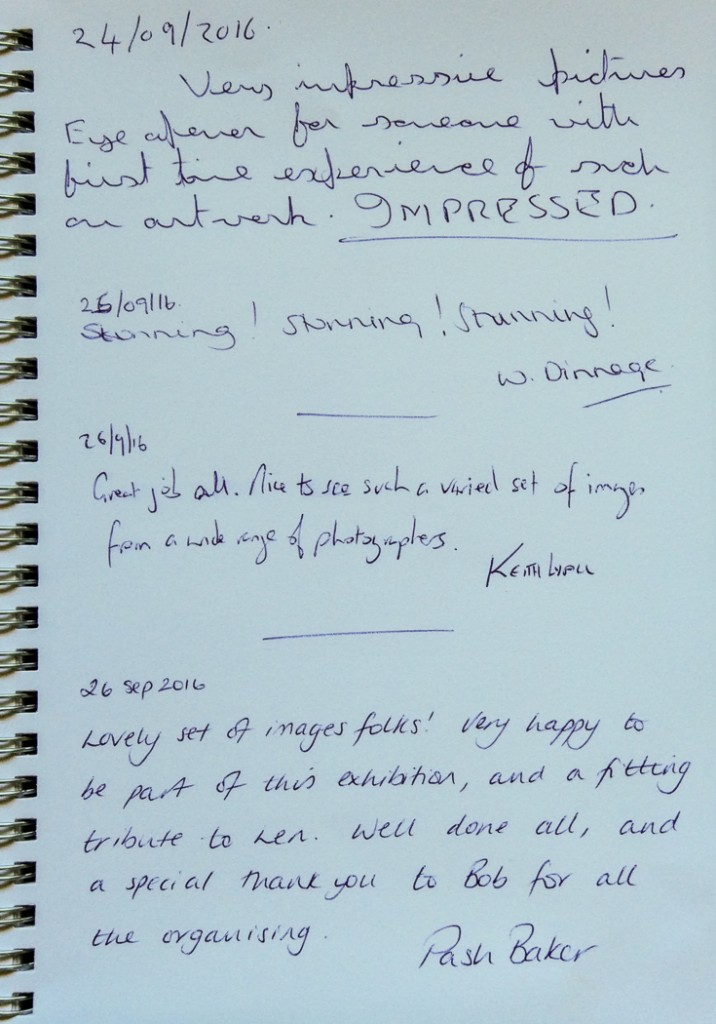 24/09/2016.
Very impressive pictures
Eye opener for someone with
first time experience of such
an artwork. IMPRESSED.
25/09/16
Stunning! Stunning! Stunning!
W. Dinnage.
26/9/16
Great job all. Nice to see such a varied set of images
from a wide range of photographers.
KEITH LYALL
26 Sep 2016
Lovely set of images folks! Very happy to
be part of this exhibition, and a fitting
tribute to Len. Well done all, and
a special thank you to Bob for all
the organising.
Pash Baker